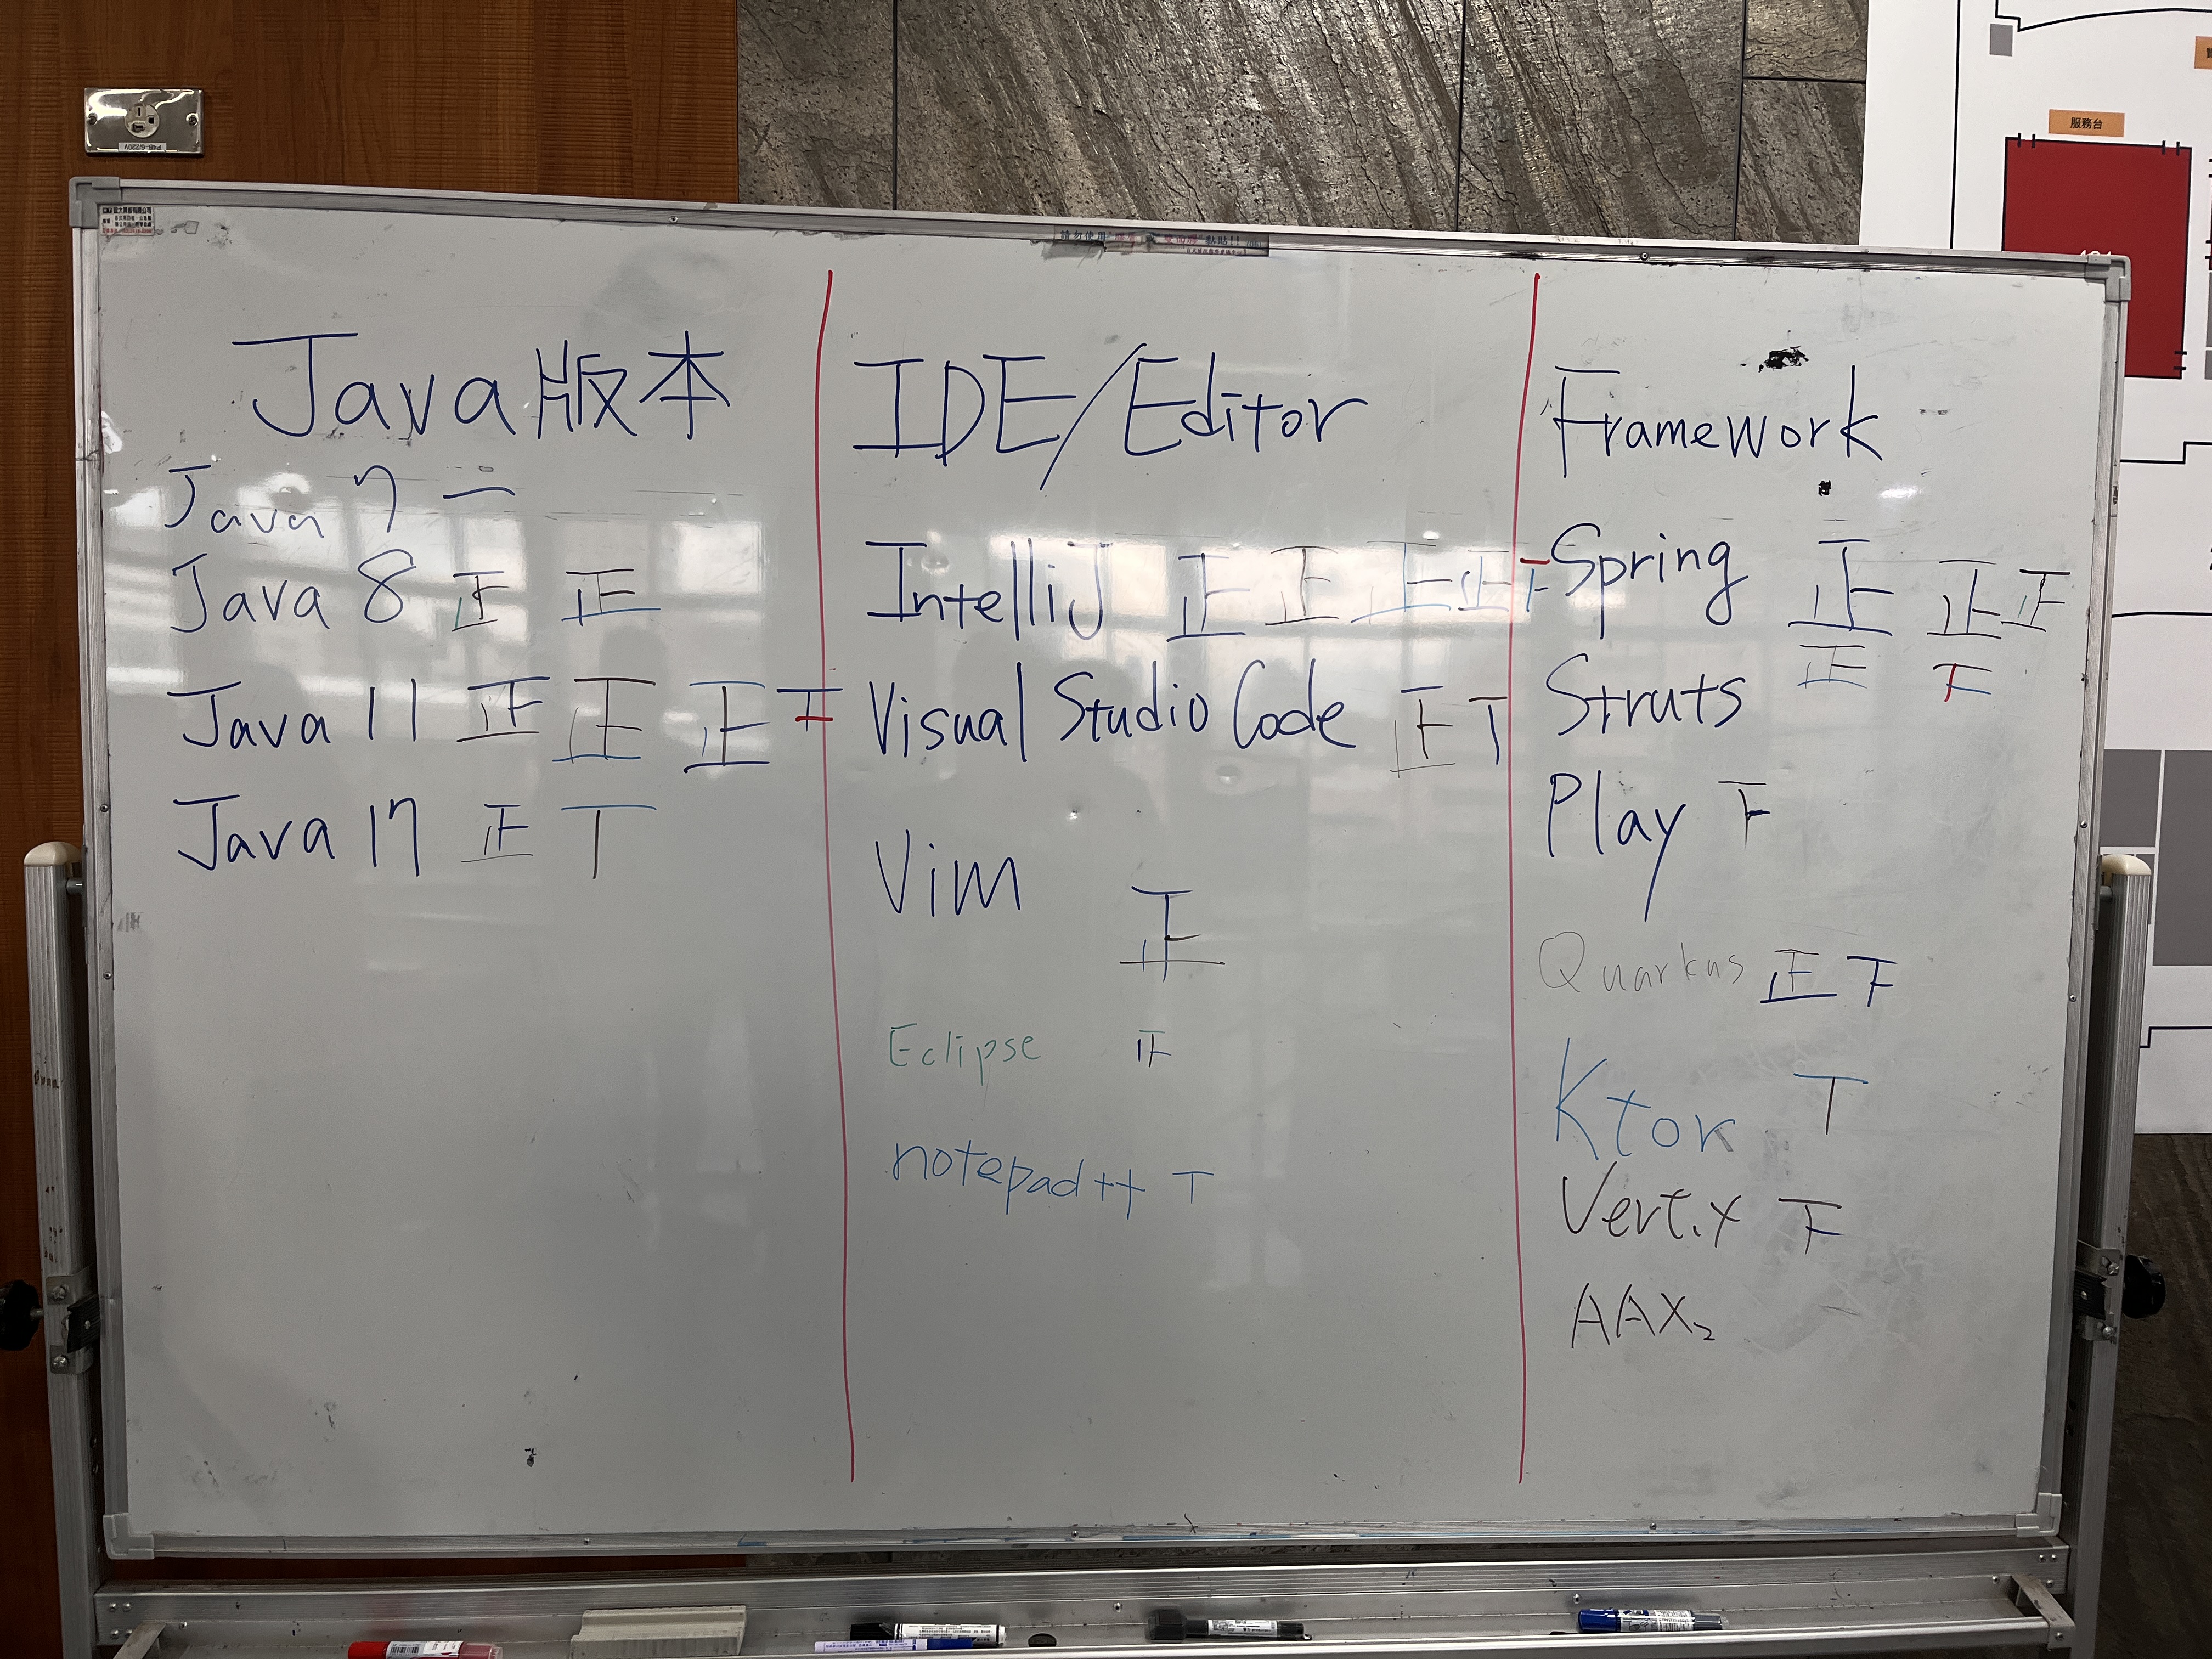 服務台
Java版本
Java 7 一
Java 8 正 正
Java 11 正 正 正
Java 17 正 T
IDE/Editor
IntelliJ 正 正 正 正
Visual Studio Code 正 T
Vim 正
Eclipse
notepad++ T
Framework
Spring 正 正 正
正
Struts
Play
Quarkus 正
Ktor T
Vert.x
AAX2